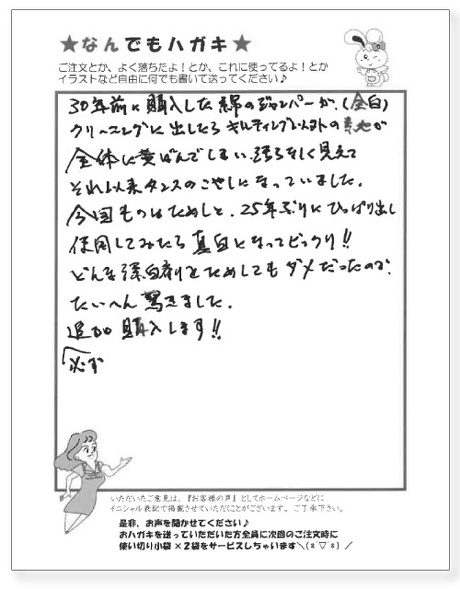 ★なんでもハガキ★
ご注文とか、よく落ちたよ！とか、これに使ってるよ！とか
イラストなど自由に何でも書いて送ってください♪
30年前に購入した綿のジャンパーが、(全白)
クリーニングに出したらキルティング以外の素地が
全体に黄ばんでしまい、誇りなく見えて
それ以来タンスのこやしになっていました。
今回ものはためしと、25年ぶりにひっぱり出し
使用してみたら真白となってビックリ!!
どんな漂白剤をためしてもダメだったので、
たいへん驚きました。
追加購入します!!
必ず
いただいたご意見は、『お客様の声』としてホームページなどに
イニシャル表記で掲載させていただくことがございます。ご了承下さい。
是非、お声を聞かせてください♪
おハガキを送っていただいた方全員に次回のご注文時に
使い切り小袋×2袋をサービスしちゃいます＼(*▽*)／